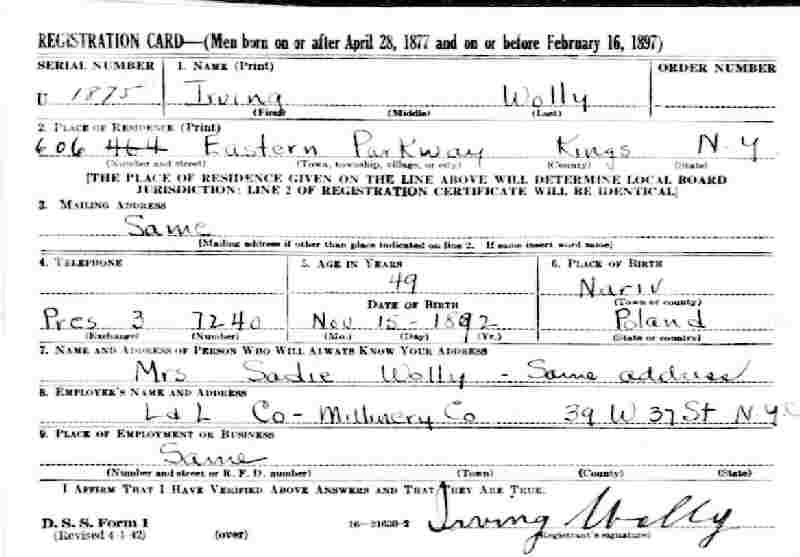 REGISTRATION CARD—(Men born on or after April 28, 1877 and on or before February 16, 1897)
SERIAL NUMBER 1. NAME (Print) ORDER NUMBER
U 1875 Irving Wolly
(First) (Middle) (Last)
2. PLACE OF RESIDENCE (Print)
606 464 Eastern Parkway Kings N.Y
(Number and street) (Town, township, village, or city) (County) (State)
[THE PLACE OF RESIDENCE GIVEN ON THE LINE ABOVE WILL DETERMINE LOCAL BOARD
JURISDICTION; LINE 2 OF REGISTRATION CERTIFICATE WILL BE IDENTICAL]
3. MAILING ADDRESS
Same
[Mailing address if other than place indicated on line 2. If same insert word same]
4. TELEPHONE 5. AGE IN YEARS 6. PLACE OF BIRTH
49 Nariv
DATE OF BIRTH (Town or county)
Pres 3 7240 Nov 15-1892 Poland
(Exchange) (Number) (Mo.) (Day) (Yr.) (State or country)
7. NAME AND ADDRESS OF PERSON WHO WILL ALWAYS KNOW YOUR ADDRESS
Mrs Sadie Wolly - Same address
8. EMPLOYER'S NAME AND ADDRESS
L & L Co - Millinery Co 39 W 37 St N.Y.C
9. PLACE OF EMPLOYMENT OR BUSINESS
Same
(Number and street or R. F. D. number) (Town) (County) (State)
I AFFIRM THAT I HAVE VERIFIED ABOVE ANSWERS AND THAT THEY ARE TRUE.
D. S. S. Form 1 Irving Wolly
(Revised 4-1-42) (over) 16—21630-2 (Registrant's signature)